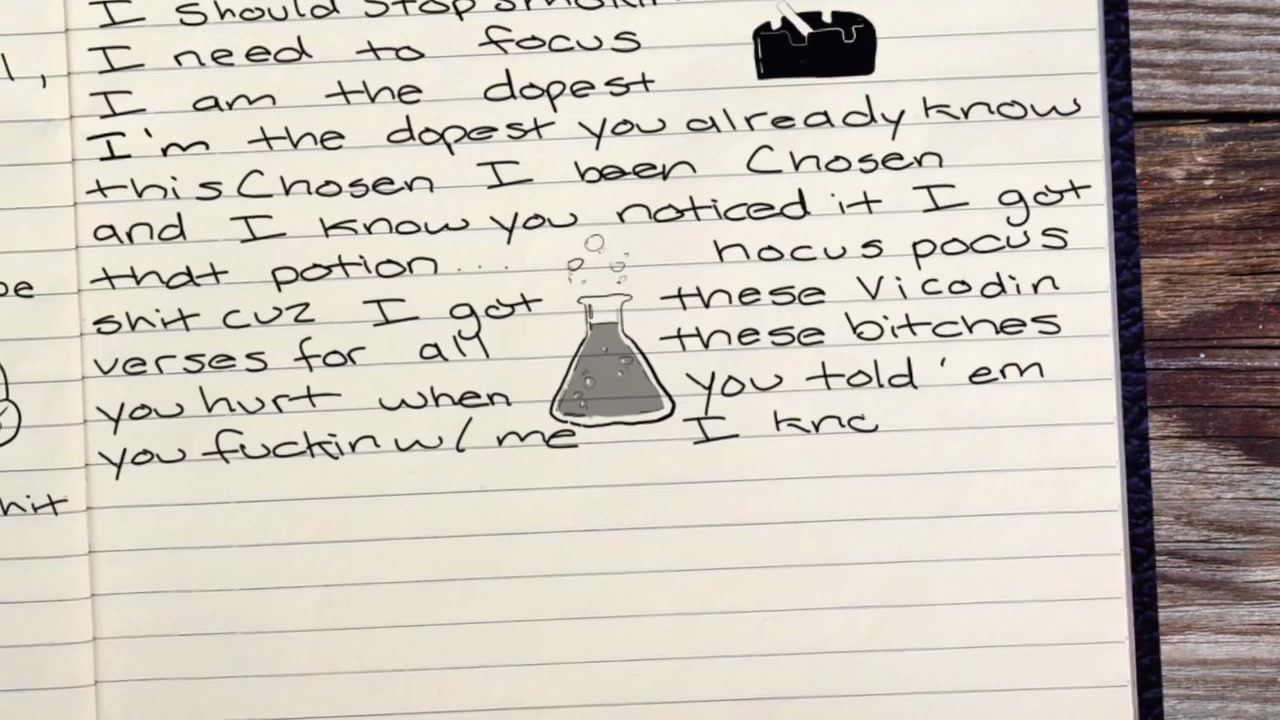 I should stop
l, I need to focus
I am the dopest
I'm the dopest you already know
this Chosen I been Chosen
and I know you noticed it I got
that potion... hocus pocus
shit cuz I got these Vicodin
verses for all these bitches
you hurt when you told 'em
you fuckin w/ me I kno
hit